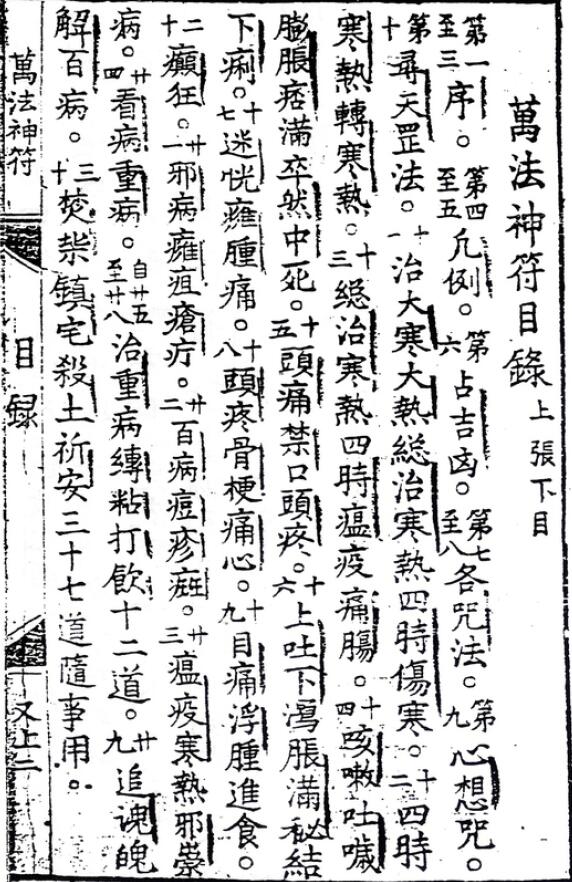 萬法神符目錄 上張下目
第一至三序。第四至五凡例。第六占吉凶。第七至八各咒法。第九心想咒。
第十尋天罡法。十一治大寒大熱総治寒熱四時傷寒。十二四時
寒熱轉寒熱。十三総治寒熱四時瘟疫痛腸。十四咳嗽吐噦
膨脹痞滿卒然中死。十五頭痛禁口頭疼。十六上吐下瀉脹滿秘結
下痢。十七迷恍癰腫痛。十八頭疼骨梗痛心。十九目痛浮腫進食。
二十癲狂。廿一邪病癰疽瘡疔。廿二百病痘疹。廿三瘟疫寒熱邪祟
病。廿四看病重病。自廿五至廿八治重病縳粘打飲十二道。廿九追魂魄
解百病。三十焚柴鎮宅殺土祈安三十七道隨事用。
萬法神符
目録
又上二